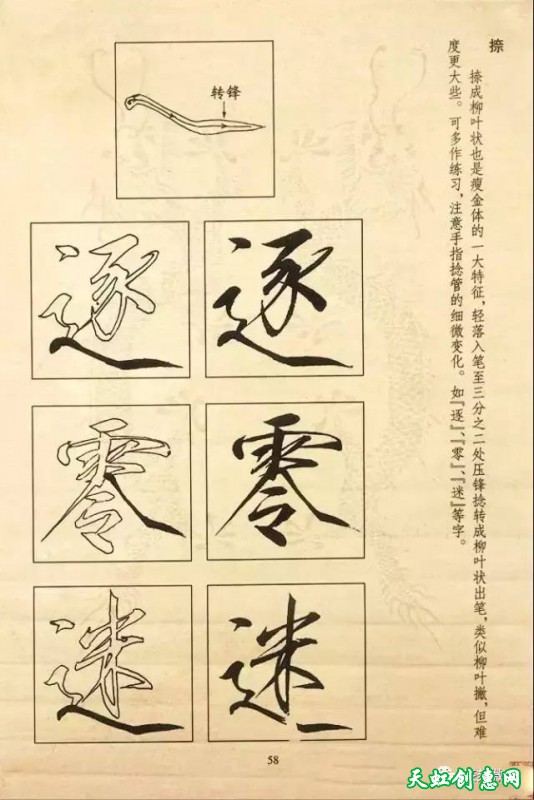 捺
捺成柳叶状也是瘦金体的一大特征，轻落入笔至三分之二处压锋捻转成柳叶状出笔，类似柳叶撇，但难
度更大些。可多作练习，注意手指捻管的细微变化。如『逐』、『零』、『迷』等字。
转锋
逐 逐
零 零
迷 迷
58
天虹创意网